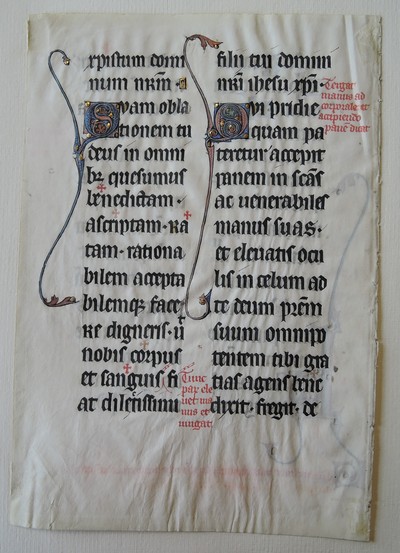 xpistum dom
num nrm̄·
Quam obla
tionem tu
deus in omni
bꝫ quesumus
benedictam·
ascriptam· ra
tam· rationa
bilem accepta
bilemqꝫ face
re digneris· ū
nobis corpus
et sanguis fi
at dilectissimi
Tunc
par ele
vet ma
nus et
iungat
filii tui domini
nr̄i ihesu xp̄i·
Qui pridie
quam pa
teretur accepit
panem in scās
ac venerabiles
manus suas·
et elevatis ocu
lis in celum ad
te deum prēm
suum omnipo
tentem tibi gra
tias agens bene
dixit· fregit· de
Tergat
manus ad
corporale et
accipiendo
pane dicat